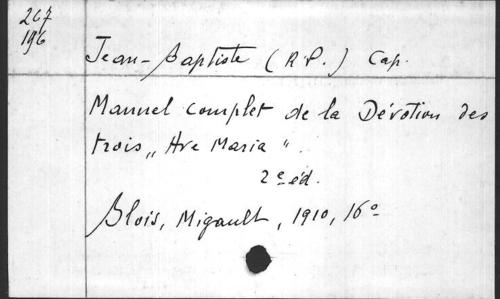 267
196
Jean-Baptiste (R.P.) Cap.
Manuel complet de la Dévotion des
trois „Ave Maria".
2e éd.
Blois, Migault, 1910, 16°